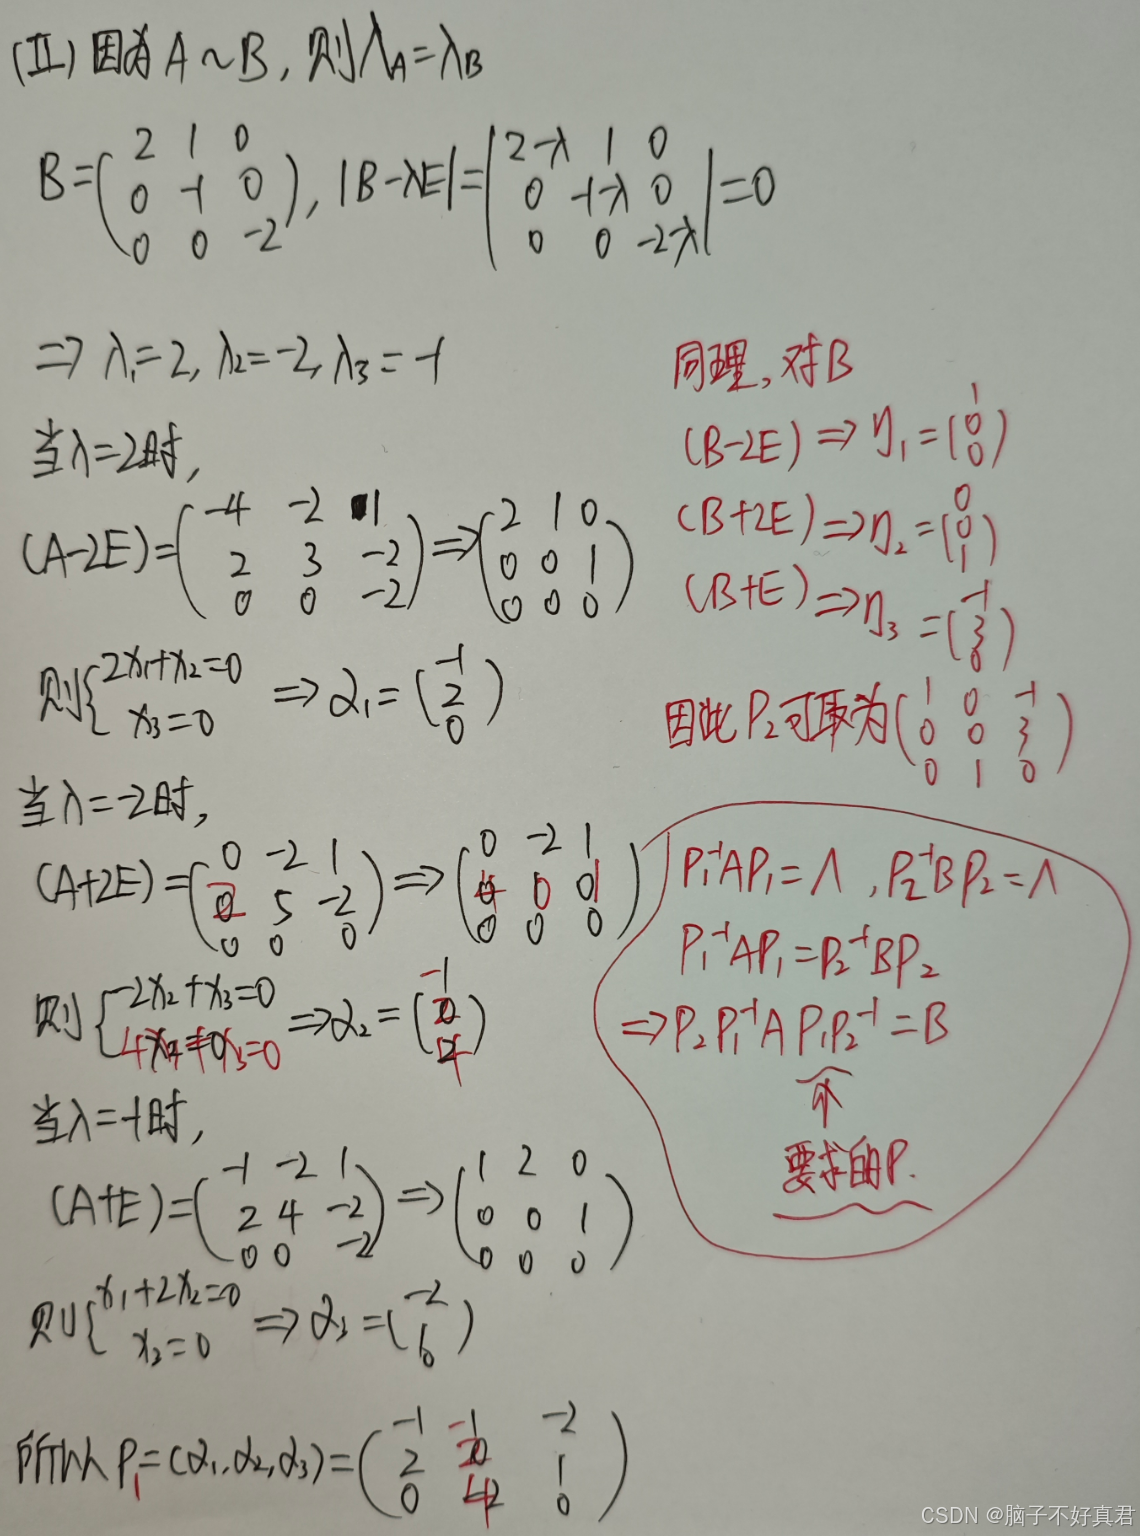 (II) 因为 A~B, 则λA=λB
B=(2 1 0
0 -1 0
0 0 -2), |B-λE|=|2-λ 1 0
0 -1-λ 0
0 0 -2-λ|=0
⇒ λ1=2, λ2=-2, λ3=-1
当λ=2时,
(A-2E)=(-4 -2 1
2 3 -2
0 0 -2)⇒(2 1 0
0 0 1
0 0 0)
则{2x1+x2=0
x3=0 ⇒ α1=(-1
2
0)
当λ=-2时,
(A+2E)=(0 -2 1
2 5 -2
0 0 0)⇒(0 -2 1
4 0 1
0 0 0)
则{-2x2+x3=0
4x1+x3=0 ⇒α2=(-1
2
4)
当λ=-1时,
(A+E)=(-1 -2 1
2 4 -2
0 0 -2)⇒(1 2 0
0 0 1
0 0 0)
则{x1+2x2=0
x3=0 ⇒ α3=(-2
1
0)
所以 P1=(α1,α2,α3)=(-1 -1 -2
2 2 1
0 4 0)
同理,对B
(B-2E)⇒η1=(1
0
0)
(B+2E)⇒η2=(0
0
1)
(B+E)⇒η3=(-1
3
0)
因此P2可取为(1 0 -1
0 0 3
0 1 0)
P1⁻¹AP1=Λ,P2⁻¹BP2=Λ
P1⁻¹AP1=P2⁻¹BP2
⇒P2P1⁻¹AP1P2⁻¹=B
↑
要求的P.
CSDN @脑子不好真君